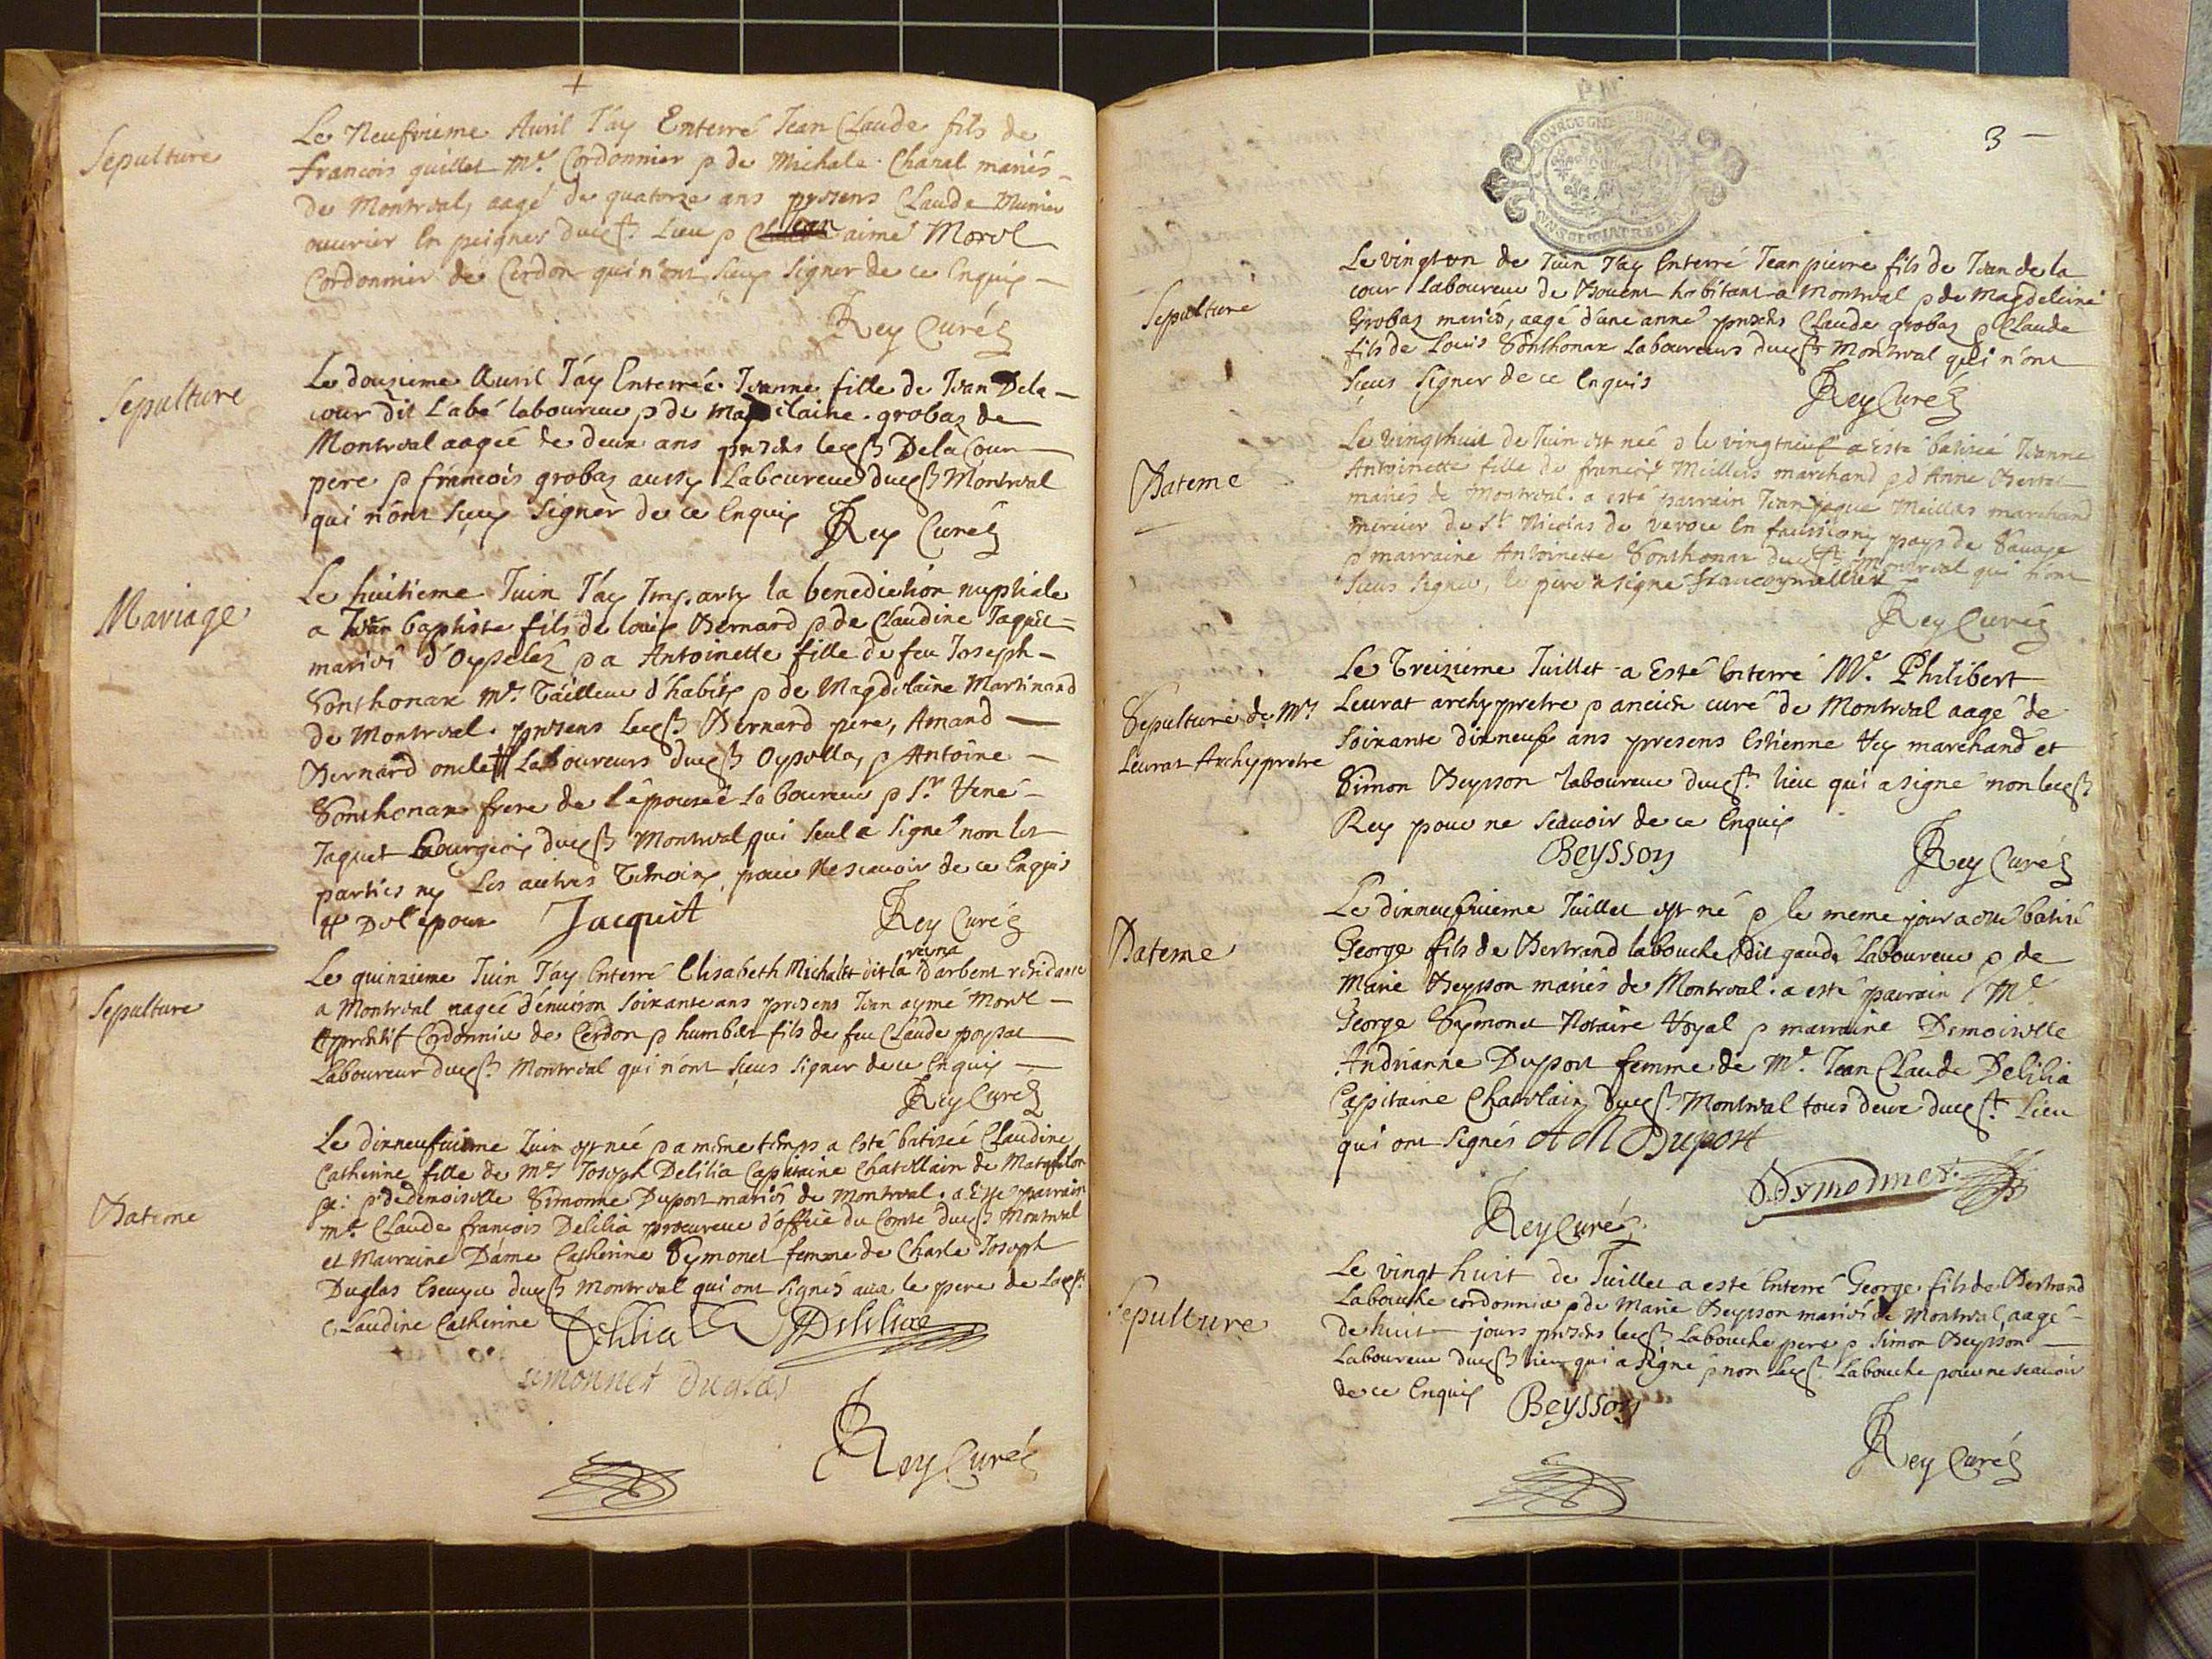 Sepulture
Le Neufvieme Avril J'ay Enterré Jean Claude fils de
francois guillet Me. Cordonnier & de Michale Chanal mariés
de Montreal, aagé de quatorze ans presens Claude Munier
ouvrier En peignes ducst. Lieu & Jean aimé Morel
Cordonnier de Cerdon qui n'ont sceus signer de ce Enquis
Rey Curé
Sepulture
Le dousieme Avril J'ay Enterrée Jeanne fille de Jean Dela
cour dit L'abé laboureur & de Magdelaine grobaz de
Montreal aagée de deux ans presens lecst Delacour
pere & francois grobaz aussy Laboureurs ducst Montreal
qui n'ont sceus signer de ce Enquis Rey Curé
Mariage
Le huitieme Juin J'ay Imparty la benediction nuptiale
a Jean baptiste fils de louis Bernard & de Claudine Jaquet
mariés d'Oysselaz & a Antoinette fille de feu Joseph
Sonthonax Me. Tailleur d'habits & de Magdelaine Martinand
de Montreal. presens lecst Bernard pere, Amand
Bernard oncle # Laboureurs ducst Oysella, & Antoine
Sonthonax frere de l'epousée laboureur & Sr. René
Jaquet bourgeois ducst Montreal qui seul a signé non les
parties ny Les autres Temoins pour ne scavoir de ce Enquis
# De l'epoux Jacquit Rey Curé
Sepulture
Le quinzieme Juin J'ay Enterré Elisabeth Michalet dit la reyna d'arbent residante
a Montreal aagée d'environ soixante ans presens Jean aymé Morel
Apprentif Cordonnier de Cerdon & humbert fils de feu Claude poysat
Laboureur ducst Montreal qui n'ont sceus signer de ce Enquis
Rey Curé
Bateme
Le dixneufvieme Juin est née & a même temps a esté batisée Claudine
Catherine fille de Me Joseph Delilia Capitaine Chatellain de Matafelon
& de demoiselle Simonne Duport mariés de Montreal. a Esté parrain
me Claude francois Delilia procureur d'office du Comté ducst Montreal
et Marraine Dame Catherine Symonet femme de Charle Joseph
Duglas Escuyer ducst Montreal qui ont signés avec le pere de Lacst.
Claudine Catherine Delilia Delilia
simonnet duglas
Rey Curé
3
Sepulture
Le vingt un de Juin J'ay Enterré Jean pierre fils de Jean de la
cour laboureur de Bouent habitant a Montreal & de Magdeleine
Grobaz mariés, aagé d'une anné presens Claude grobaz & Claude
fils de Louis Sonthonax Laboureurs ducst Montreal qui n'ont
sceus signer de ce Enquis Rey Curé
Bateme
Le vingthuit de Juin est née & le vingtneuf a Esté batisée Jeanne
Antoinette fille de francois Meillers marchand & d'Anne Bertet
mariés de Montreal. a esté parrain Jean jaque Meillers marchand
mercier de St Nicolas de veroce En faussigny pays de Savoye
& marraine Antoinette Sonthonax ducst. Montreal qui n'ont
sceus signer, le pere a signé francoymellier
Rey Curé
Sepulture de Mr
Leurat Archypretre
Le Treizieme Juillet a Esté Enterré Mr. Philibert
Leurat archypretre & ancien curé de Montreal aagé de
soixante dixneuf ans presens Estienne Rey marchand et
Simon Beysson laboureur ducst. lieu qui a signé non lecst
Rey pour ne scavoir de ce Enquis
Beysson Rey Curé
Bateme
Le dixneufvieme Juillet est né & le meme jour a esté batisé
George fils de Bertrand labouche dit gauda Laboureur & de
Marie Beysson mariés de Montreal. a esté parrain Me
George Symonet Notaire Royal & marraine Demoiselle
Andrianne Duport femme de Me. Jean Claude Delilia
Capitaine Chatelain ducst Montreal tous deux ducst. Lieu
qui ont signés A M Duport
Symonnet
Rey Curé
Sepulture
Le vingt huit de Juillet a esté Enterré George fils de Bertrand
Labouche cordonnier & de Marie Beysson mariés de Montreal, aagé
de huit jours presens lecst Labouche pere & Simon Beysson
Laboureur ducst lieu qui a signé & non lecst. Labouche pour ne scavoir
de ce Enquis Beysson
Rey Curé